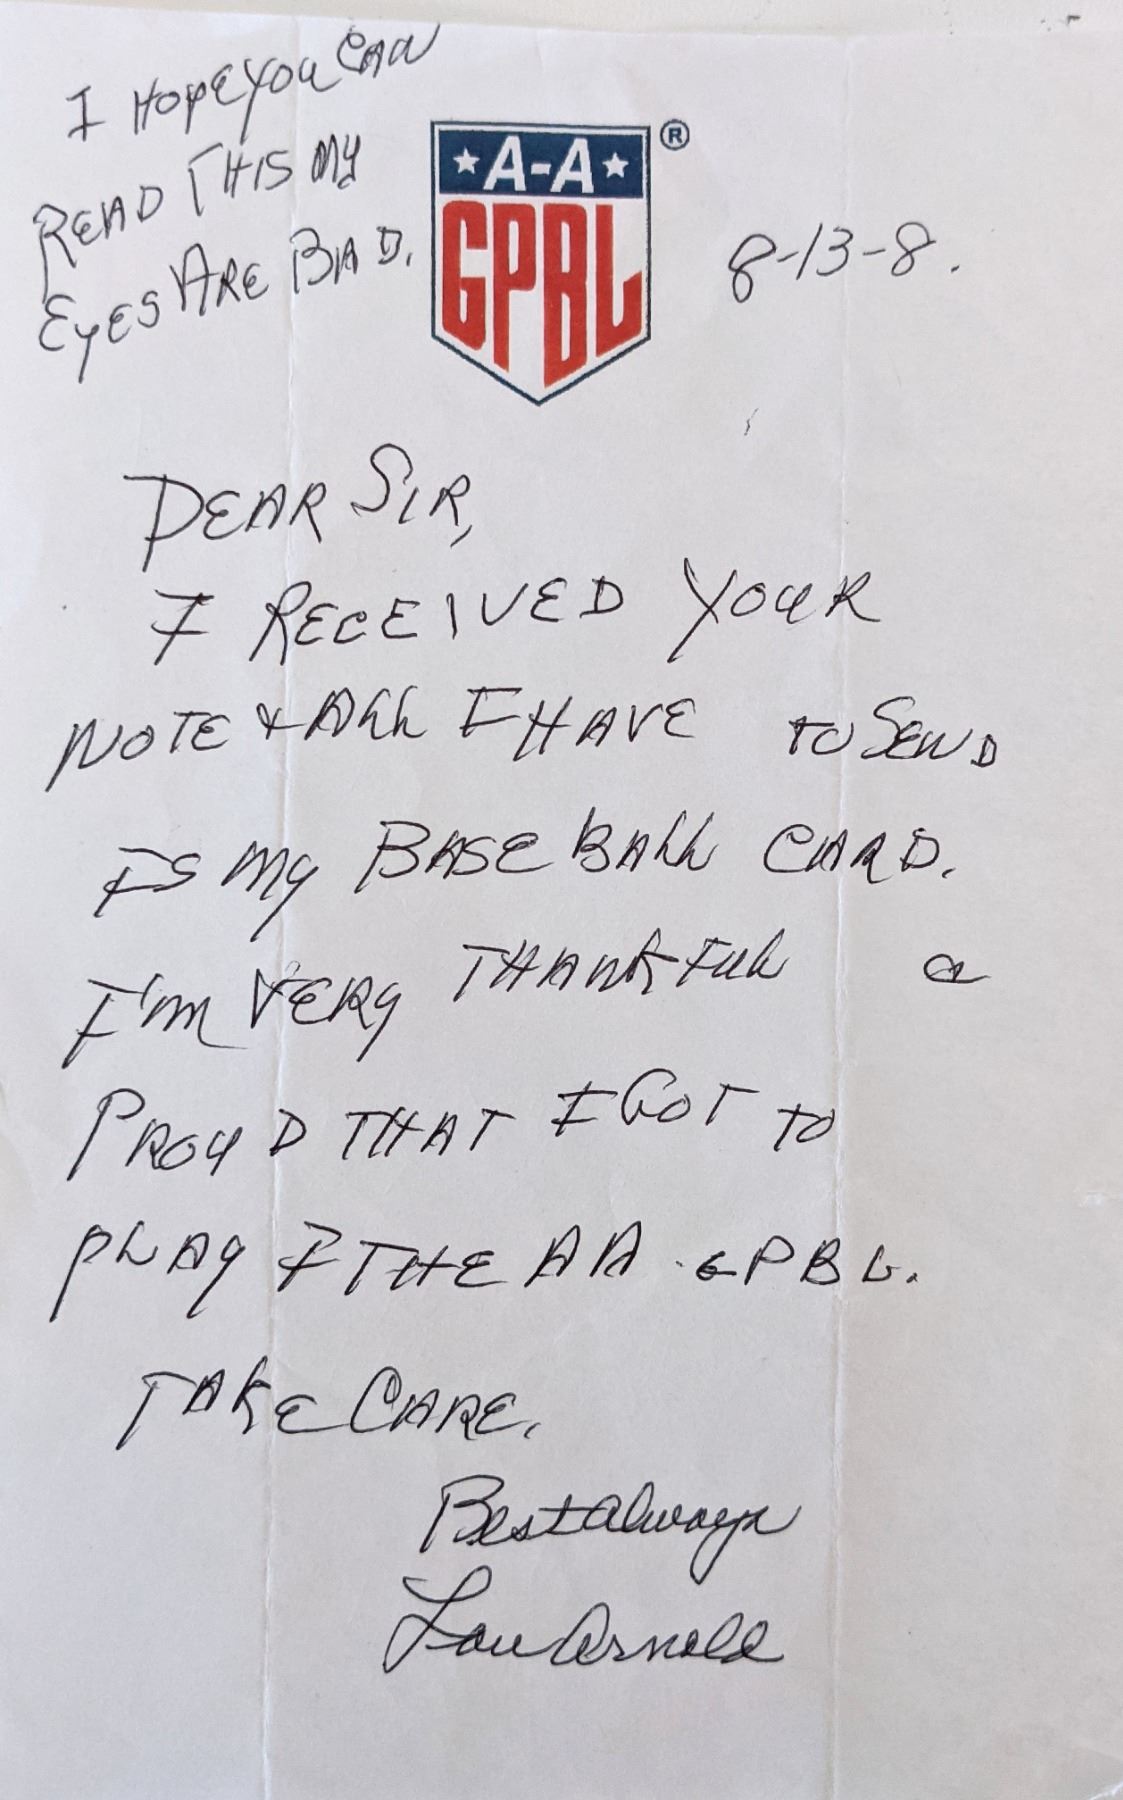 I HOPE YOU CAN
READ THIS MY
EYES ARE BAD.
★ A-A ★ ®
GPBL
8-13-8.
DEAR SIR,
I RECEIVED YOUR
NOTE & ALL I HAVE TO SEND
IS MY BASEBALL CARD.
I'M VERY THANKFUL &
PROUD THAT I GOT TO
PLAY I THE AA.GPBL.
TAKE CARE.
Best always
Lou Arnold